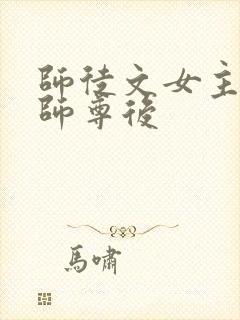 師徒文女主
師尊後
馬嘯